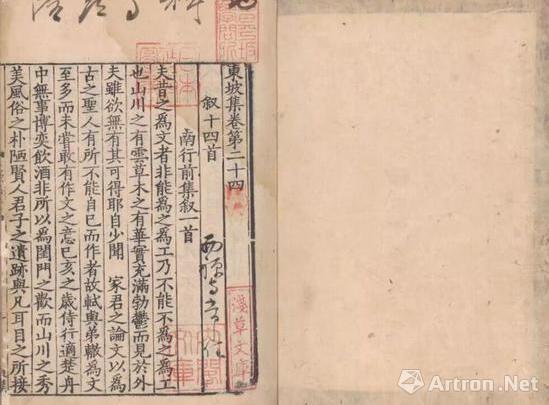 東坡集卷第二十四
叙十四首
南行前集叙一首
夫昔之爲文者非能爲之爲工乃不能不爲之爲工
也山川之有雲草木之有華實充滿勃鬱而見於外
夫雖欲無有其可得耶自少聞 家君之論文以爲
古之聖人有所不能自已而作者故軾與弟轍爲文
至多而未嘗敢有作文之意己亥之歲侍行適楚舟
中無事博奕飲酒非所以爲閨門之歡而山川之秀
美風俗之朴陋賢人君子之遺跡與凡耳目之所接
淺草文庫
Artron.Net